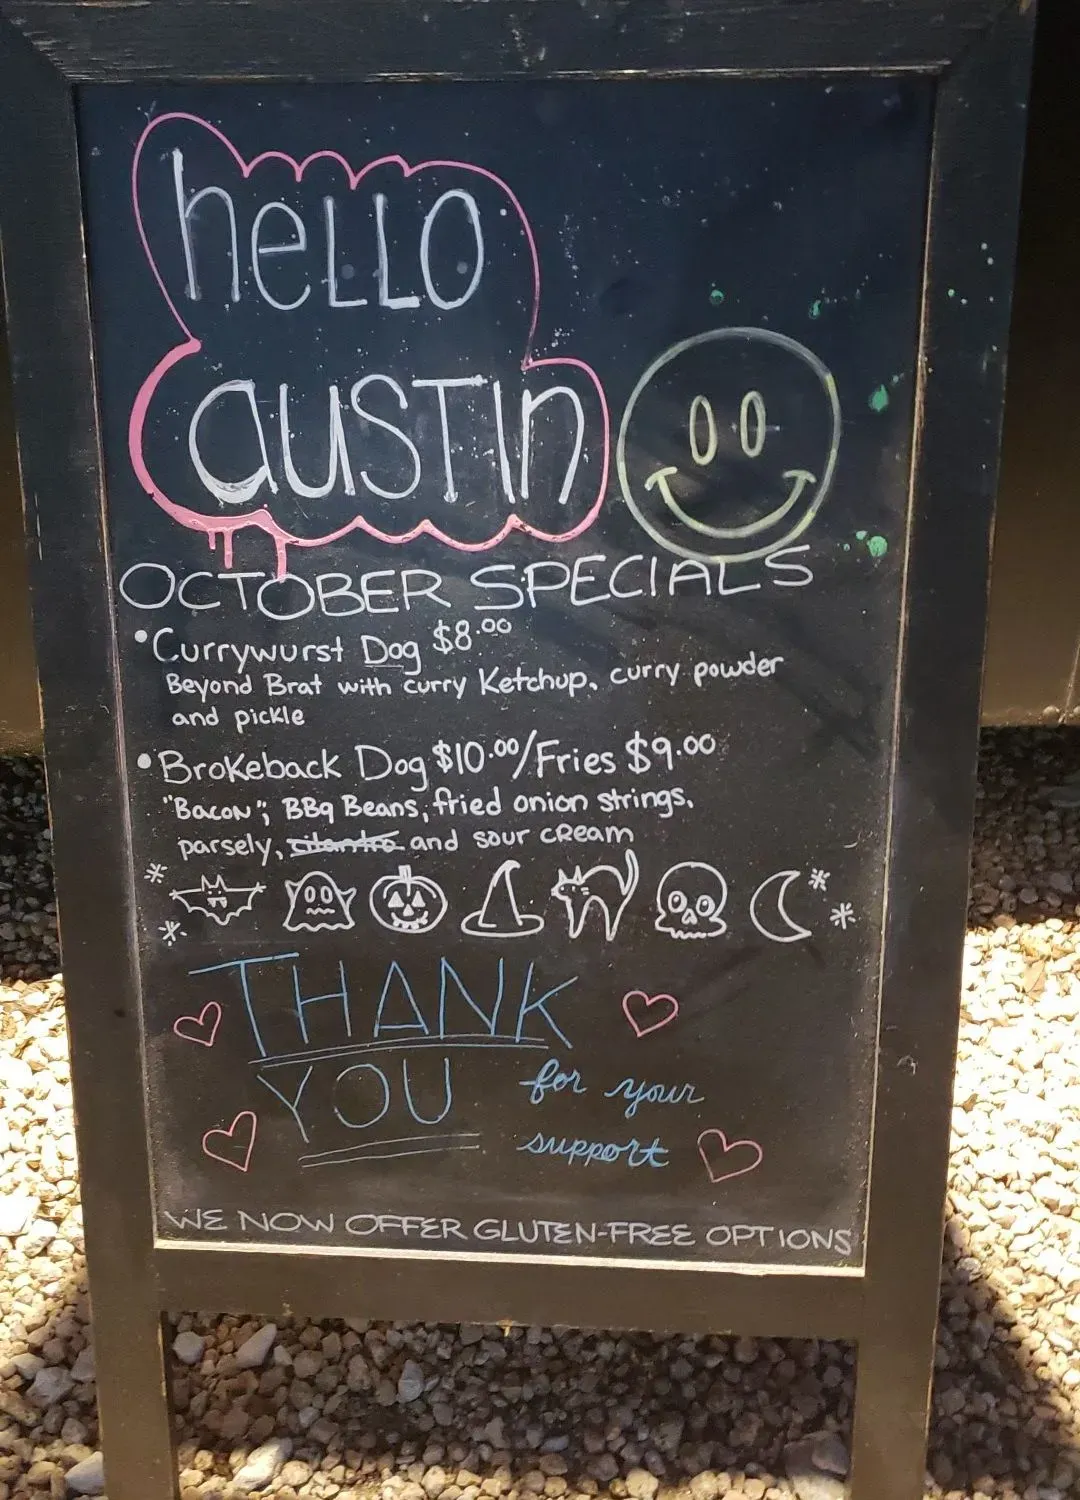 hello
austin
OCTOBER SPECIALS
•Currywurst Dog $8.00
Beyond Brat with curry Ketchup, curry powder
and pickle
•Brokeback Dog $10.00/Fries $9.00
"Bacon", BBq Beans, fried onion strings,
parsely, cilantro and sour cream
THANK
YOU for your
support
WE NOW OFFER GLUTEN-FREE OPTIONS